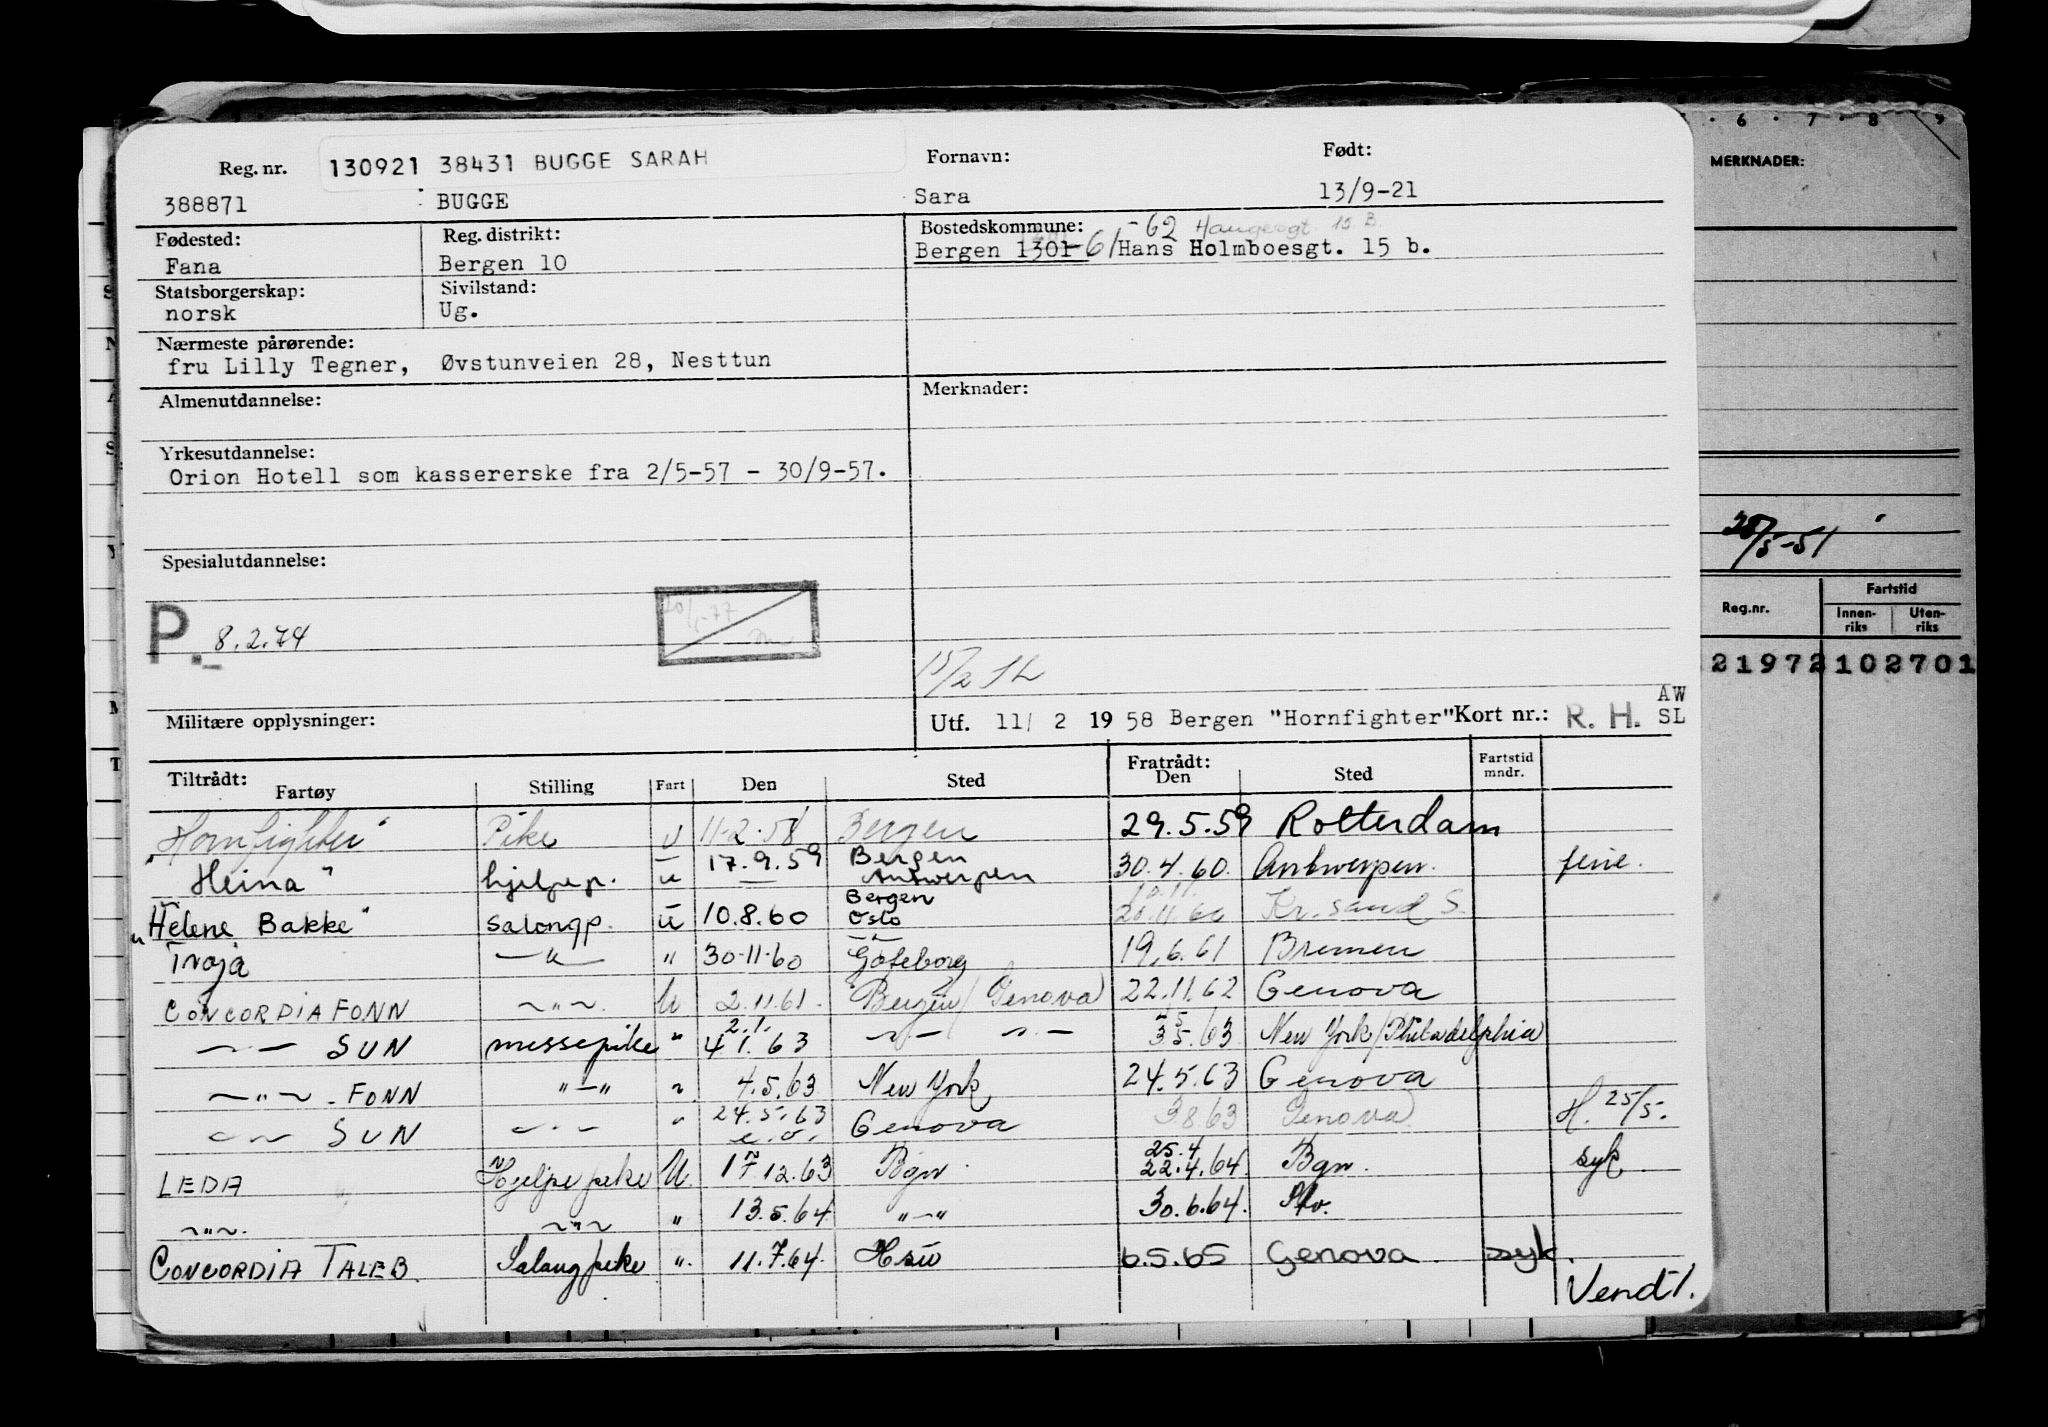 Reg. nr. 130921 38431 BUGGE SARAH Fornavn: Født:
388871 BUGGE Sara 13/9-21
Fødested: Reg. distrikt: Bostedskommune: -62 Haugesgt 15 B.
Fana Bergen 10 Bergen 1301-61 Hans Holmboesgt. 15 b.
Statsborgerskap: Sivilstand:
norsk Ug.
Nærmeste pårørende:
fru Lilly Tegner, Øvstunveien 28, Nesttun
Almenutdannelse: Merknader:
Yrkesutdannelse:
Orion Hotell som kassererske fra 2/5-57 - 30/9-57.
Spesialutdannelse:
P. 8.2.74
15/2
Militære opplysninger: Utf. 11/ 2 19 58 Bergen "Hornfighter" Kort nr.: R. H. AW
SL
Tiltrådt: Fratrådt: Fartstid
Fartøy Stilling Fart Den Sted Den Sted mndr.
"Hornfighter" Pike U 11-2-58 Bergen 29.5.59 Rotterdam
"Heina" hjelpep. u 17.9.59 Bergen Antwerpen 30.4.60. Antwerpen. ferie.
"Helene Bakke" salongp. u 10.8.60 Bergen Oslo 20.11.60 Kr.sand S.
Troja —"— " 30-11-60 Göteborg 19.6.61 Bremen
CONCORDIA FONN ~"~ U 2.11.61. Bergen/Genova 22.11.62 Genova
~"~ SUN messepike " 2.1. 4 1.63 ~"~ ~"~ 3 5.63 New York/Philadelphia
~"~ FONN "-" " 4.5.63 New York 24.5.63 Genova
~"~ SUN ~"~ " 24.5.63 Genova 3.8.63 Genova H. 25/5.
LEDA Hjelpepike U. 17.12.63 Bgn. 25.4 22.4.64. Bgn. syk
~"~. ~"~ " 13.5.64 "-" 30.6.64. Stv.
CONCORDIA TALEB. Salongpike ". 11.7.64. 6.5.65 Genova syk.
Vend!.
6 7 8 9
MERKNADER:
28/5-51
Reg.nr. Fartstid
Innen-
riks Uten-
riks
219721102701